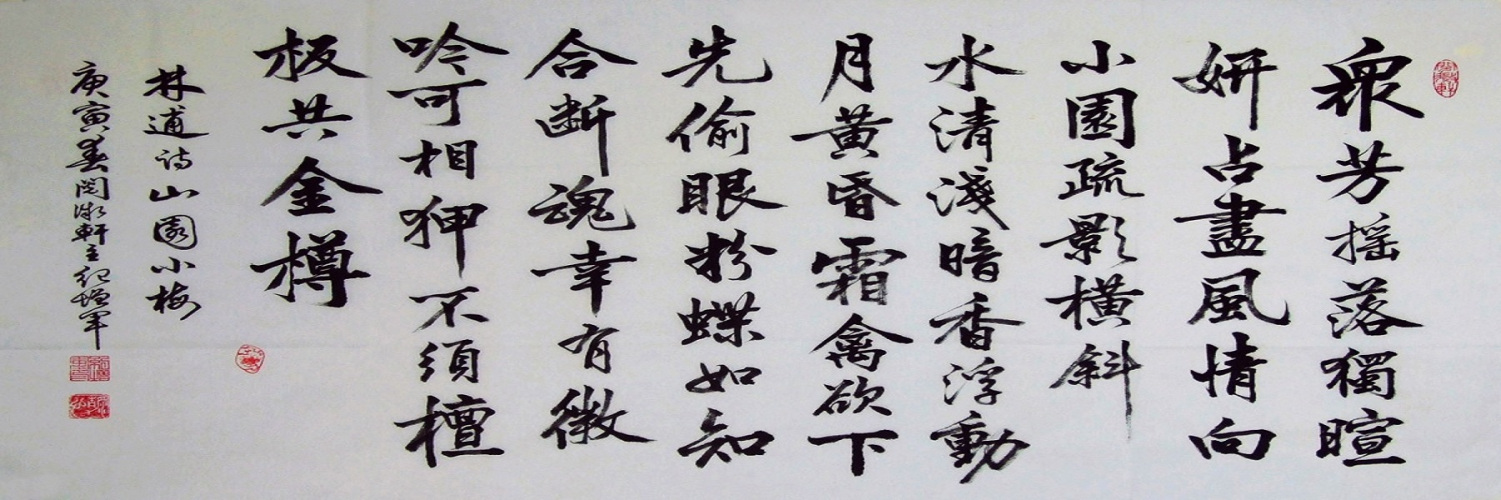 衆芳摇落獨暄
妍占盡風情向
小園疏影橫斜
水清淺暗香浮動
月黃昏霜禽欲下
先偷眼粉蝶如知
合断魂幸有微
吟可相狎不須檀
板共金樽
林逋诗山園小梅
庚寅春閲微軒主纪增军